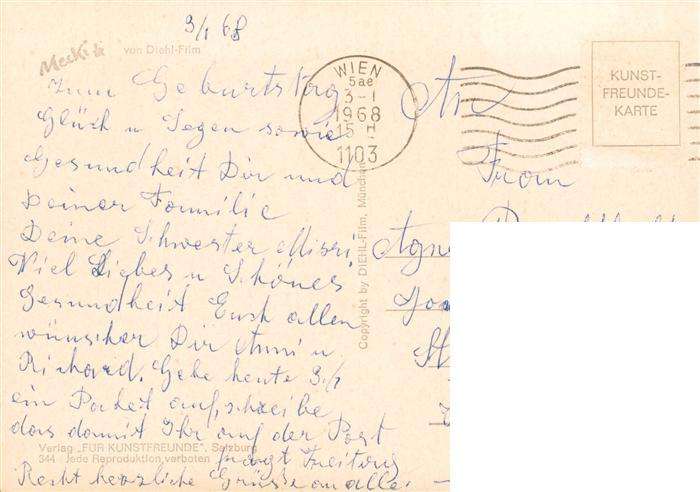 3/1 68
Mecki
von Diehl-Film
Zum Geburtstag
Glück u Segen sowie
Gesundheit Dir und
Deiner Familie
Deine Schwester
Viel Liebes u Schönes
Gesundheit Euch allen
wünschen Dir Anni u
Richard. Gebe heute 3./1
ein Packet auf, schreibe
das damit Ihr auf der Post
fragt Zeitung
Recht herzliche Grüsse an alle
Verlag „FÜR KUNSTFREUNDE", Salzburg
344 - Jede Reproduktion verboten
Copyright by DIEHL-Film, München
WIEN
5ae
3-1
1968
15 H
1103
KUNST-
FREUNDE-
KARTE
An
Fram
Agn